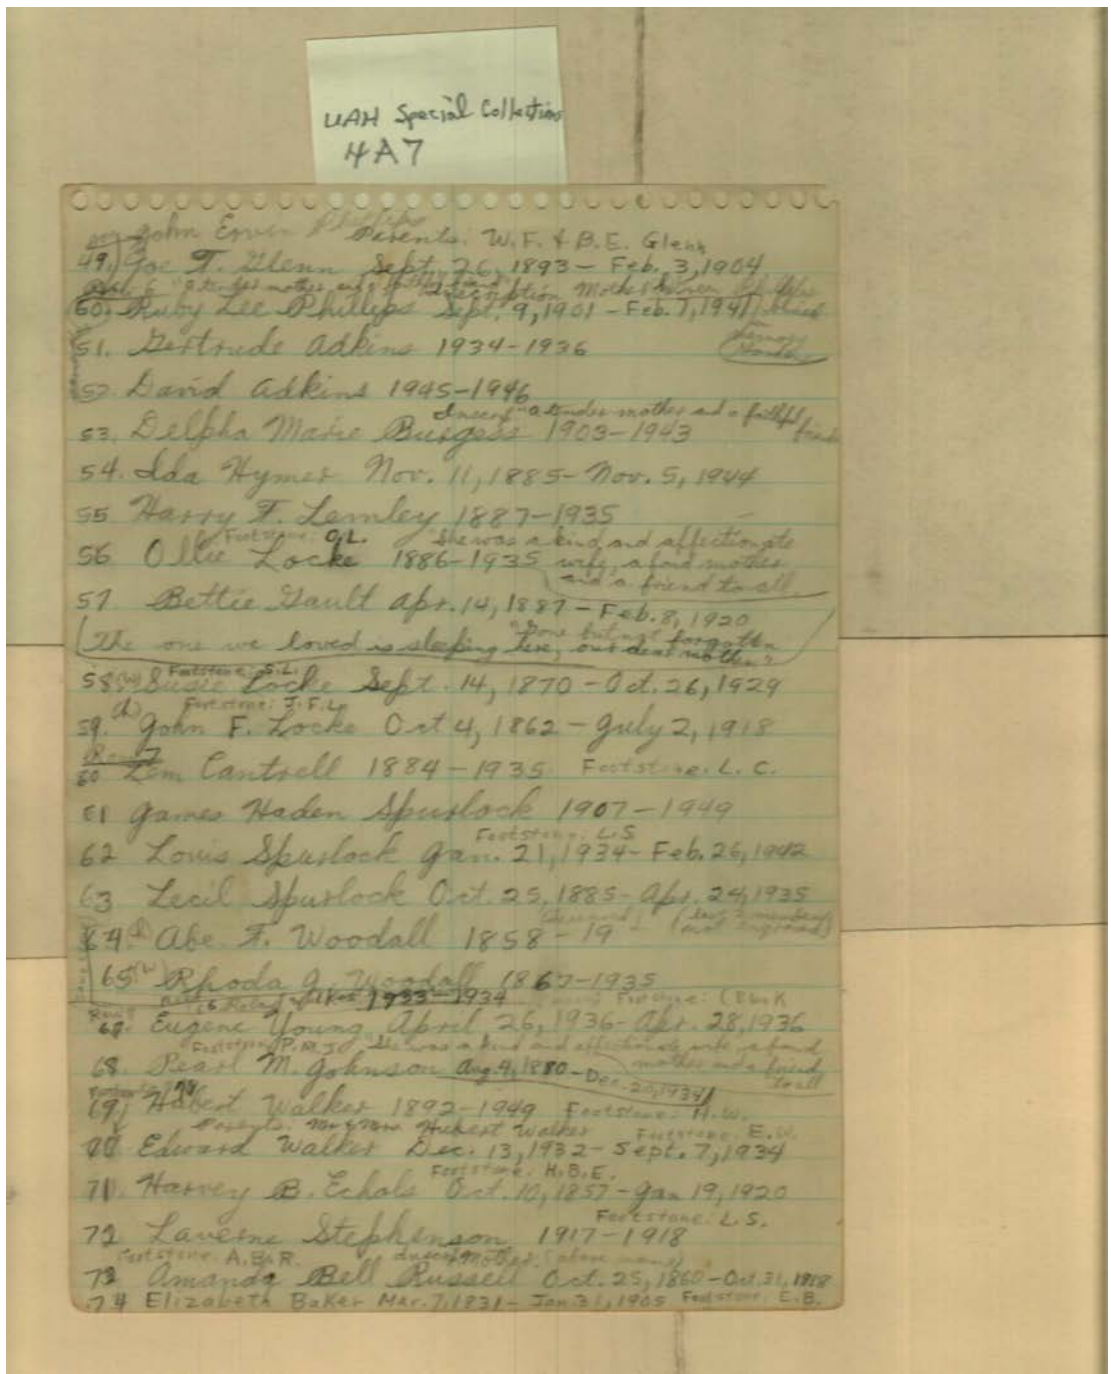 UAH Special Collections
4A7
John Ervin Phillips Parents: W.F. & B.E. Glenn
49. Joe T. Glenn Sept. 26, 1893 - Feb. 3, 1904
Inscription Mother
50. Ruby Lee Phillips Sept. 9, 1901 - Feb. 7, 1941
51. Gertrude Adkins 1934-1936
52. David Adkins 1945-1946
"A tender mother and a faithful friend
53. Delpha Marie Burgess 1903-1943
54. Ida Hymer Nov. 11, 1885- Nov. 5, 1944
55 Harry F. Lemley 1887-1935
Footstone: O.L. She was a kind and affectionate
56 Ollie Locke 1886-1935 wife, a fond mother
and a friend to all.
57. Bettie Gault Apr. 14, 1887 - Feb. 8, 1920
"Gone but not forgotten
The one we loved is sleeping here, our dear mother"
Footstone: S.L.
58 (w) Susie Locke Sept. 14, 1870 - Oct. 26, 1929
(h) Footstone: J.F.L.
59. John F. Locke Oct 4, 1862 - July 2, 1918
Row 7
60 Lem Cantrell 1884-1935 Footstone. L. C.
61 James Haden Spurlock 1907-1949
Footstone: L.S
62 Louis Spurlock Jan. 21, 1934- Feb. 26, 1942
63 Lecil Spurlock Oct. 25, 1885- Apr. 24, 1935
(last 2 numbers
64 (h) Abe. F. Woodall 1858-19 not engraved)
65 (w) Rhoda J. Woodall 1867-1935
1933-1934 Footstone:
67. Eugene Young April 26, 1936- Apr. 28, 1936
Footstone P.M.J. "She was a kind and affectionate wife, a fond
68. Pearl M. Johnson Aug. 9, 1880 - Dec. 20, 1934 mother and a friend
to all
69 Hubert Walker 1892-1949 Footstone: H.W.
Parents: Mr & Mrs. Hubert Walker Footstone: E.W.
70 Edward Walker Dec. 13, 1932- Sept. 7, 1934
Footstone. H.B.E.
71. Harvey B. Echols Oct. 10, 1857-Jan 19, 1920
Footstone: L.S.
72 Laverne Stephenson 1917-1918
Footstone: A.B.R. Mother (above name)
73 Amanda Bell Russell Oct. 25, 1860-Oct. 31, 1888
74 Elizabeth Baker Mar. 7, 1831- Jan. 31, 1905 Footstone: E.B.